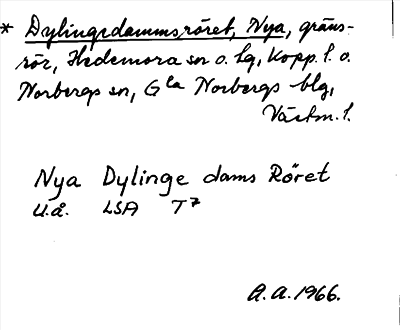 * Dylingedammsröret, Nya, gräns-
rör, Hedemora sn o. lg, Kopp. l. o.
Norbergs sn, Gla Norbergs blg,
Västm. l.
Nya Dylinge dams Röret
U.å. LSA T7
A.A. 1966.